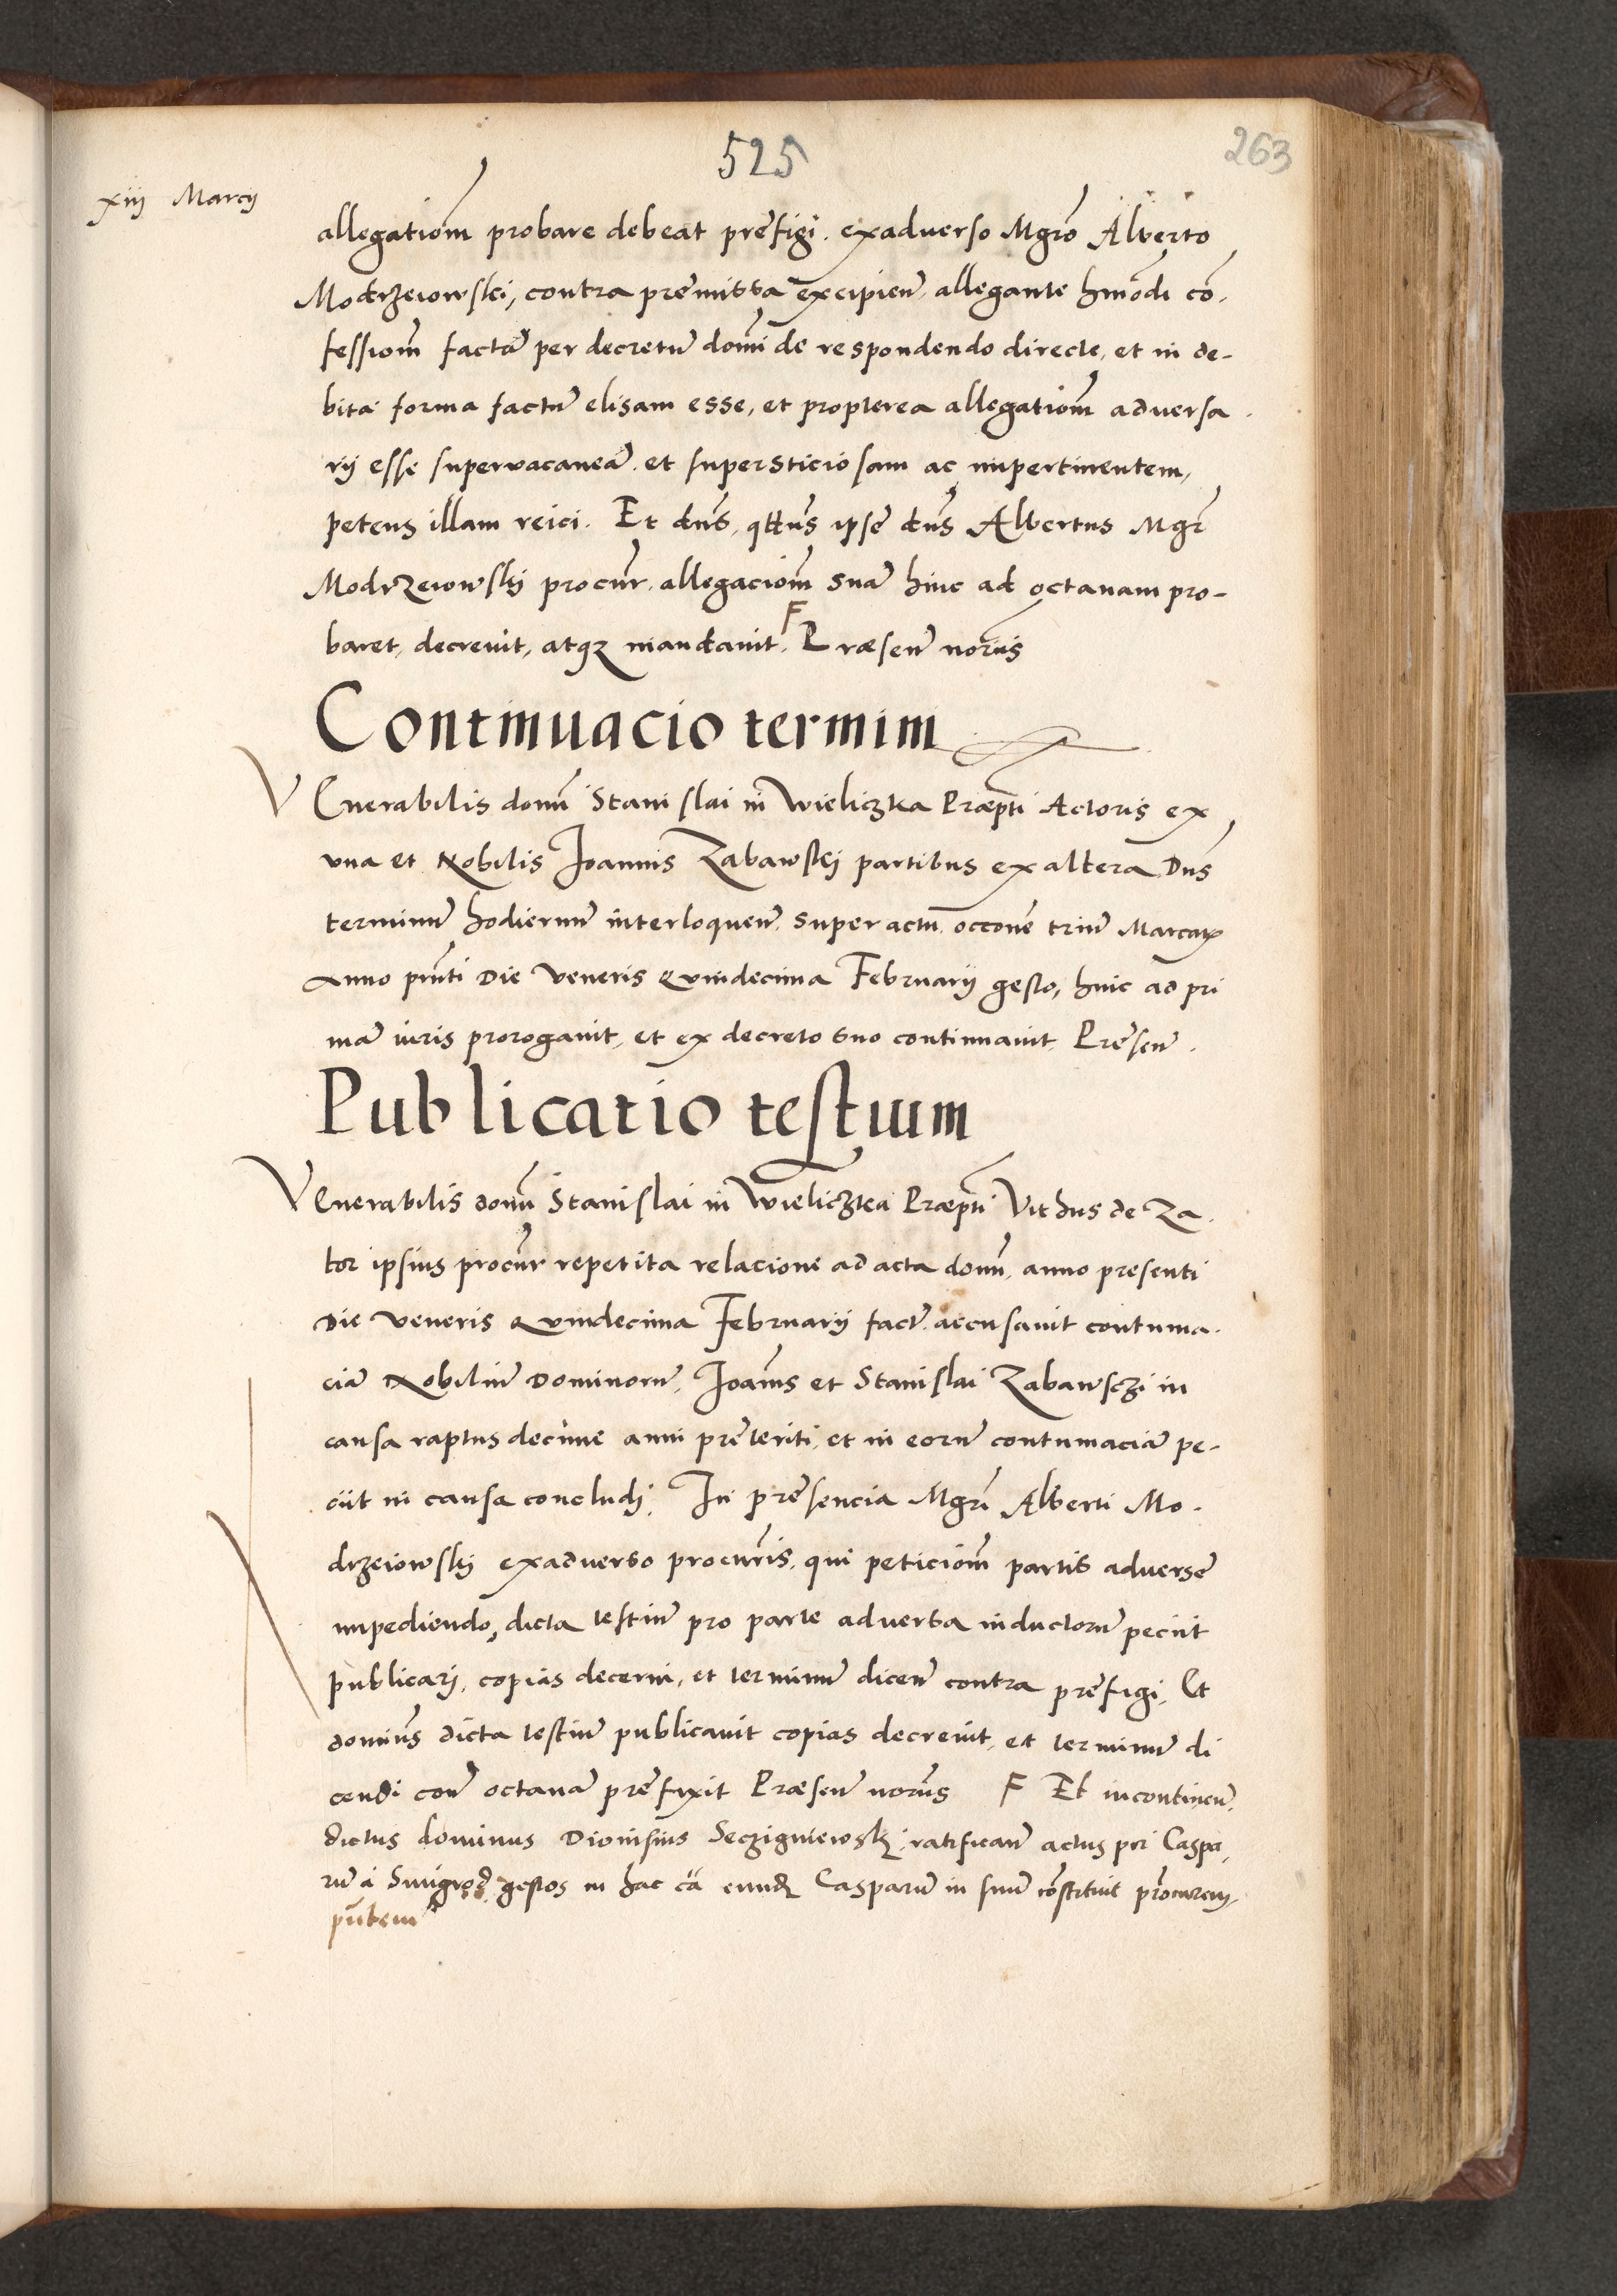 525
263
xiij Marcij
allegationem probare debeat prefigi. exadverso Mgro Alberto
Modrzeiowski, contra premissa excipien. allegante hmodi co-
fessionem factam per decretum domini de respondendo directe, et in de-
bita forma factum elisam esse, et propterea allegationem adversa
rij esse supervacaneam et supersticiosam ac impertinentem,
petens illam reici. Et dns, qtus ipse dns Albertus Mgr
Modrzeiowski procur. allegacionem suam hinc ad octavam pro-
baret, decrevit, atqz mandavit. F Præsen norijs
Continuacio termini
Venerabilis domini Stanislai in Wieliczka Præpti Actoris ex
una et Nobilis Joannis Zabawski partibus ex altera Dns
terminum hodiernum interloquen. super actu occone trium Marcarum
Anno prnti Die Veneris Quindecima Februarij gesto, hinc ad pri
mam iuris prorogavit, et ex decreto suo continuavit, Presen.
Publicatio testium
Venerabilis domini Stanislai in Wieliczka Præpti Vithus de Za-
tor ipsius procur repetita relacione ad acta domini, anno presenti
Die Veneris Quindecima Februarij fact. accusavit contuma-
ciam Nobilium Dominorum, Joannis et Stanislai Zabawsczi in
causa raptus decime anni preteriti, et in eorum contumaciam pe-
ciit in causa concludi. In presencia Mgri Alberti Mo-
drzeiowski exadverso procuris, qui peticionem partis adverse
impediendo, dicta testium pro parte adversa inductorum peciit
publicari, copias decerni, et terminum dicen contra prefigi, Et
dominus dicta testium publicavit copias decrevit, et terminum di
cendi con octavam prefixit Præsen norijs F Et incontinen.
dictus dominus Dionisius Seczigniewski ratifican actus pri Caspa
rum a Smigrod gestos in hac ca eundem Casparum in suum constituit procurem
pntem